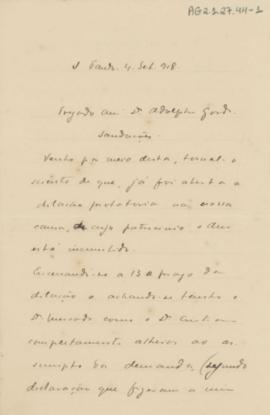 AG2.1.27.44-1
S Paulo, 4, Set. 918.
Amº Sr. Dr. Adolpho Gordo
Saudações.
Venho por meio desta, tornal-o
sciente de que, já foi aberta a
dilação probatoria na nossa
causa, de cujo patrocinio o Dr.
está incumbido.
Encerrando-se a 13 o prazo da
dilação e achando-se tanto o
Dr. como o Dr.
completamente alheios ao as
sumpto da demanda, (segundo
declaração que fizeram a mim